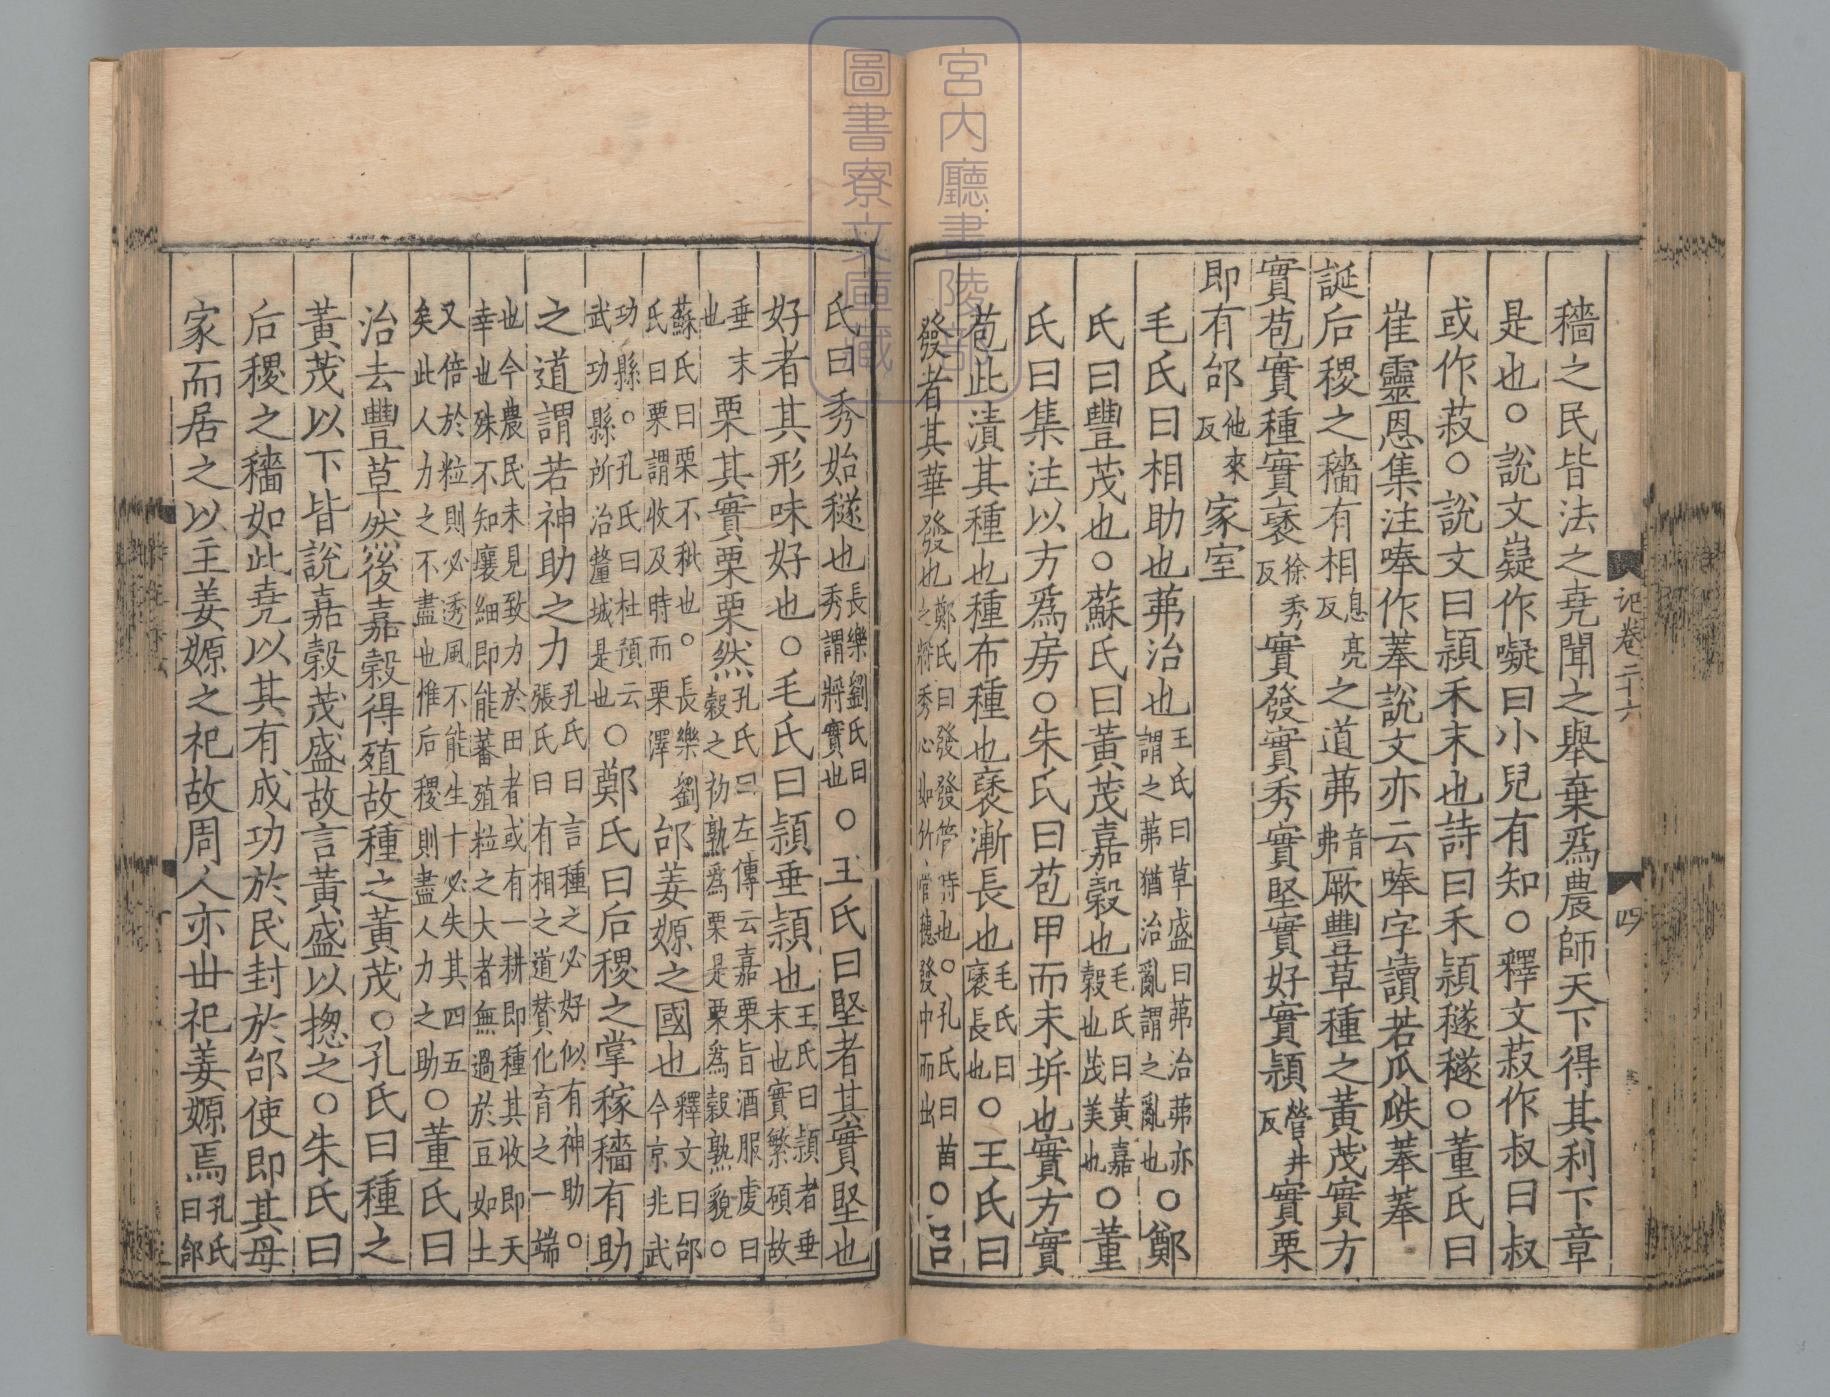 穡之民皆法之堯聞之舉棄爲農師天下得其利下章
是也○說文嶷作㘈曰小兒有知○釋文菽作叔曰叔
或作菽○說文曰穎禾末也詩曰禾穎穟穟○董氏曰
崔靈恩集注唪作菶說文亦云唪字讀若瓜瓞菶菶
誕后稷之穡有相息亮反之道茀音弗厥豐草種之黃茂實方
實苞實種實褎徐秀反實發實秀實堅實好實穎營井反實栗
即有邰他來反家室
毛氏曰相助也茀治也王氏曰草盛曰茀治茀亦謂之茀猶治亂謂之亂也○鄭
氏曰豐茂也○蘇氏曰黃茂嘉穀也毛氏曰黃嘉穀也茂美也○董
氏曰集注以方爲房○朱氏曰苞甲而未坼也實方實
苞此漬其種也種布種也褎漸長也毛氏曰褎長也○王氏曰
發者其華發也鄭氏曰發發管時也○孔氏曰苗之將秀心如竹管穗發中而出○呂
氏曰秀始穟也長樂劉氏曰秀謂將實也○王氏曰堅者其實堅也
好者其形味好也○毛氏曰穎垂穎也王氏曰穎者垂末也實繁碩故
垂末也栗其實栗栗然孔氏曰左傳云嘉栗旨酒服虔曰穀之初熟爲栗是栗爲穀熟貌○
蘇氏曰栗不秕也○長樂劉氏曰栗謂收及時而栗澤邰姜嫄之國也釋文曰邰今京兆武
功縣○孔氏曰杜預云武功縣所治釐城是也○鄭氏曰后稷之掌稼穡有助
之道謂若神助之力孔氏曰言種之必好似有神助○張氏曰有相之道贊化育之一端
也今農民未見致力於田者或有一耕即種其收即天幸也殊不知穰細即能蕃殖粒之大者無過於豆如土
又倍於粒則必透風不能生十必失其四五矣此人力之不盡也惟后稷則盡人力之助○董氏曰
治去豐草然後嘉穀得殖故種之黃茂○孔氏曰種之
黃茂以下皆說嘉穀茂盛故言黃盛以揔之○朱氏曰
后稷之穡如此堯以其有成功於民封於邰使即其母
家而居之以主姜嫄之祀故周人亦世祀姜嫄焉孔氏曰邰
記卷二十六
四
宮內廳書陵部
圖書寮文庫藏